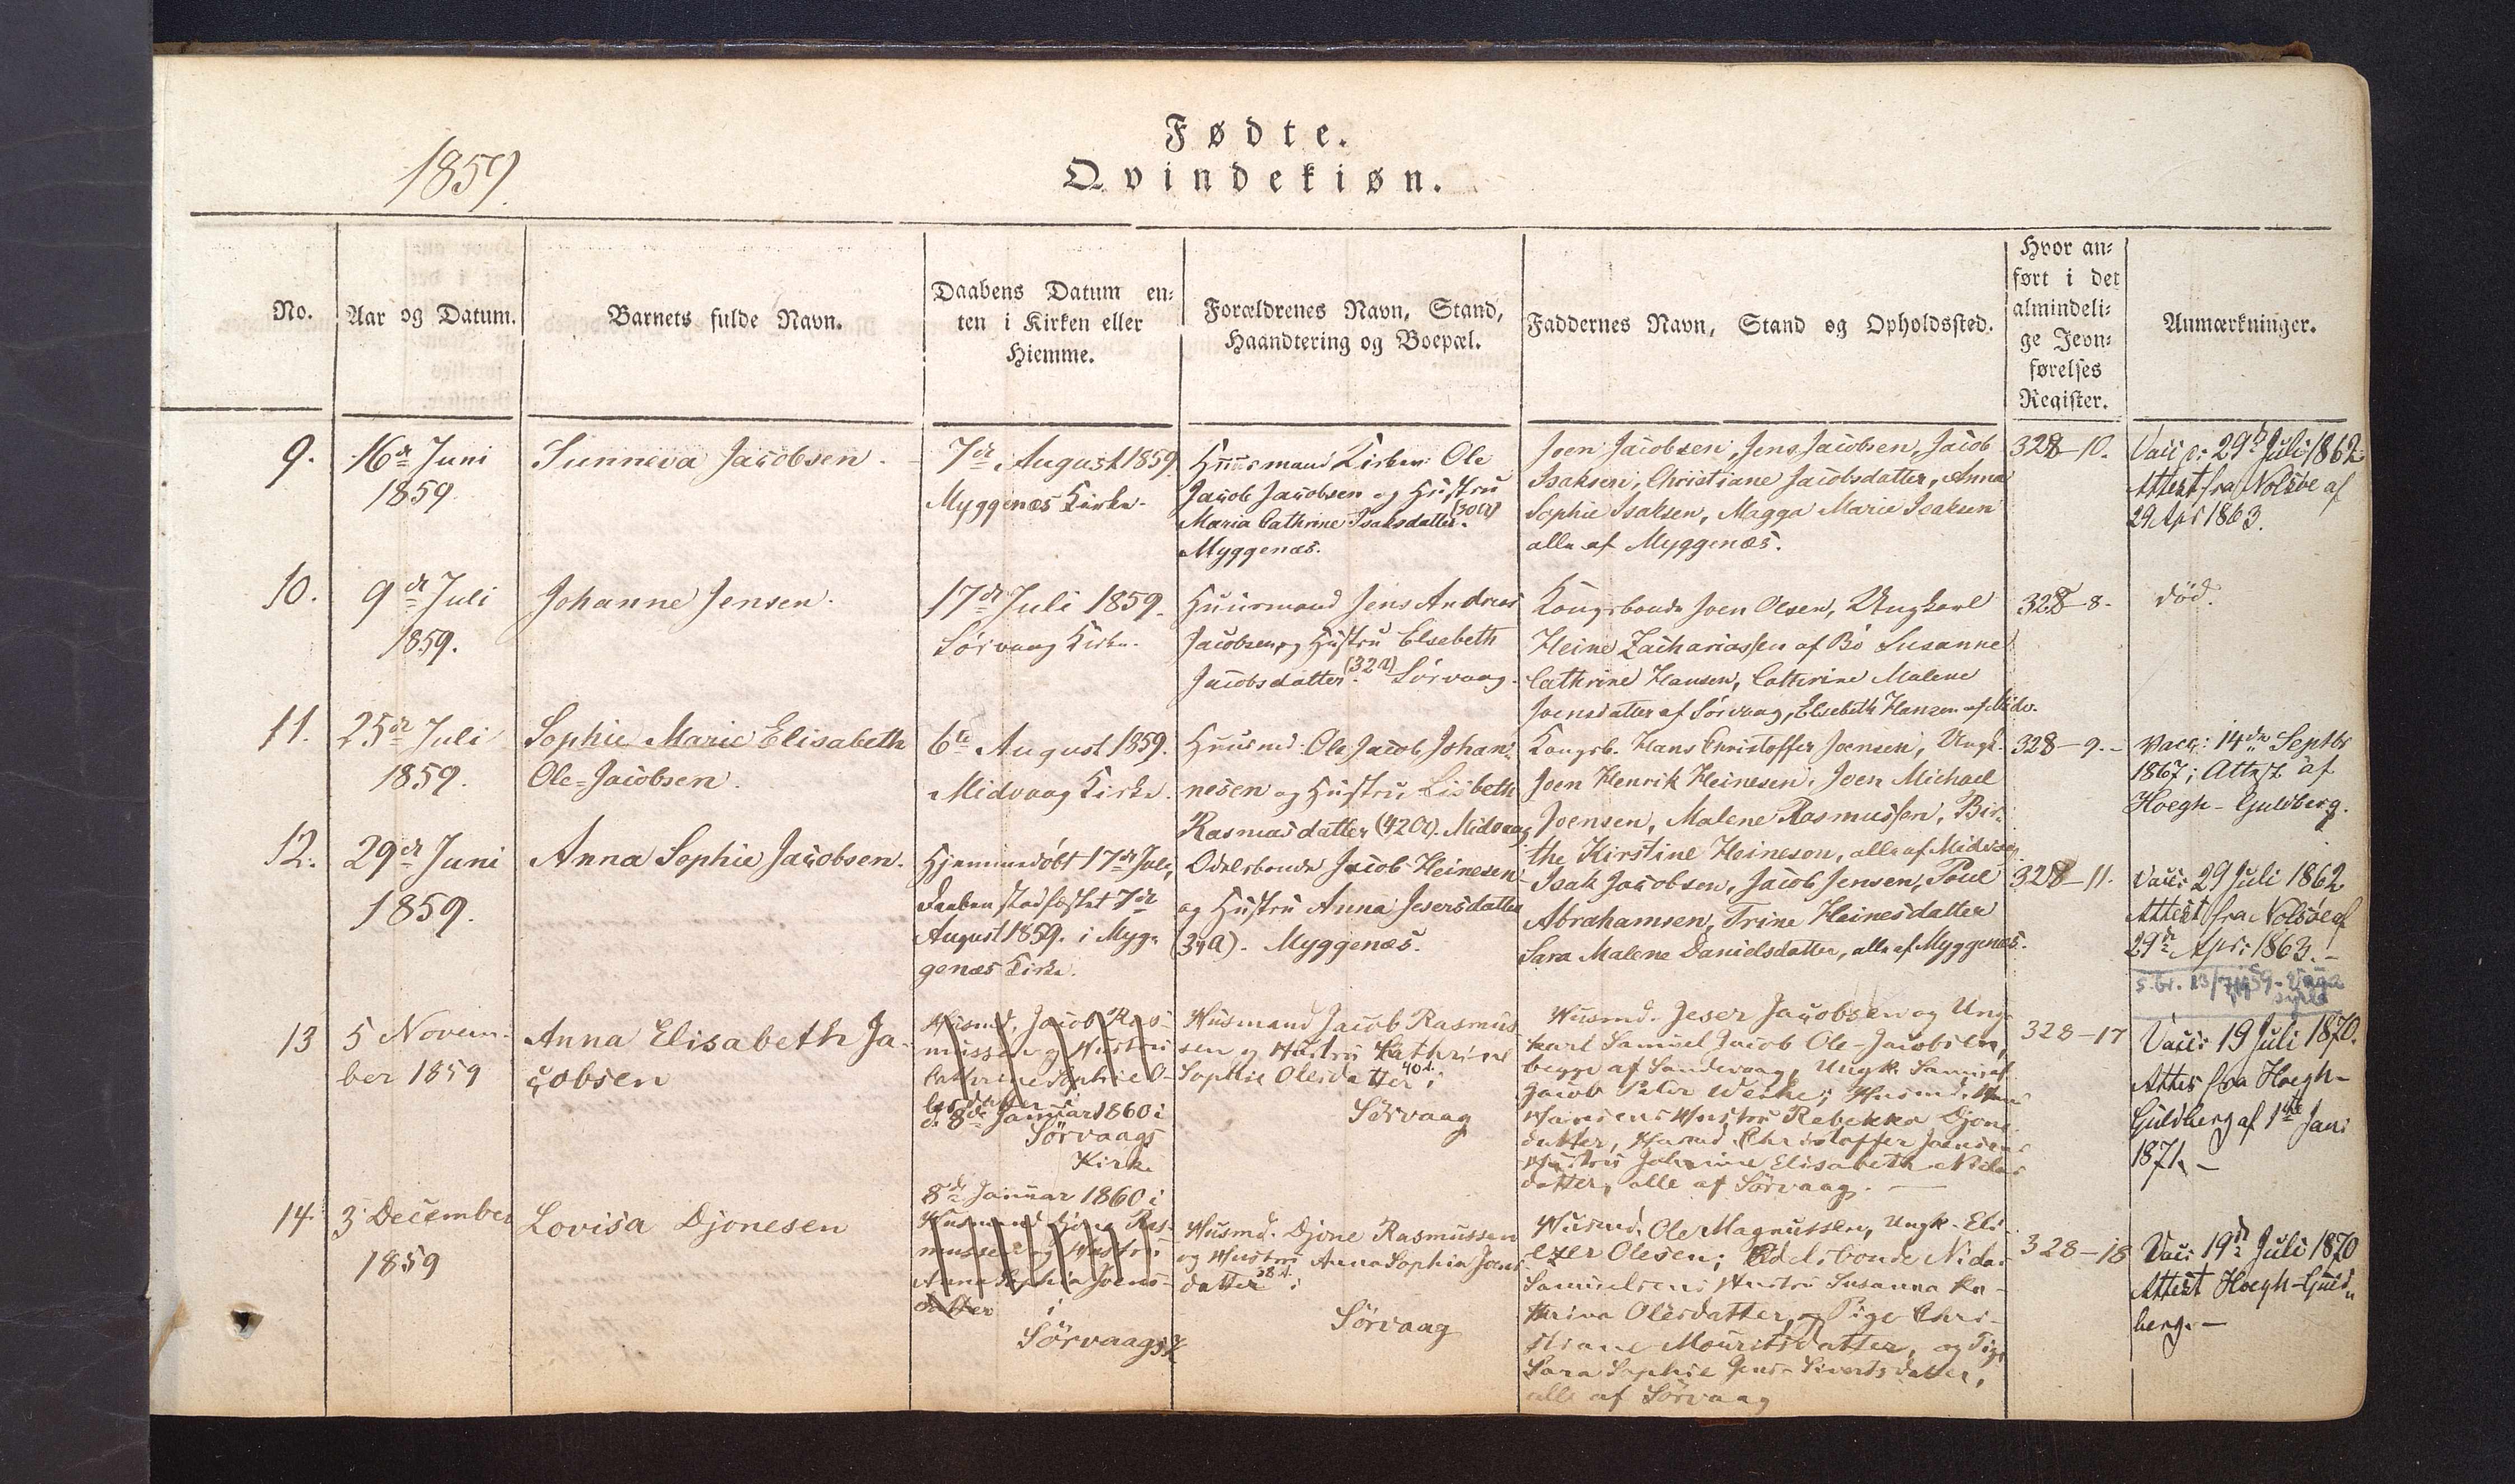 Fødte.
Qvindekiøn.
1859.
No.
Aar og Datum.
Barnets fulde Navn.
Daabens Datum en=
ten i Kirken eller
Hiemme.
Forældrenes Navn, Stand,
Haandtering og Boepæl.
Faddernes Navn, Stand og Opholdssted.
Hvor an=
ført i det
almindeli=
ge Jevn=
førelses
Register.
Anmærkninger.
9.
16de Juni
1859.
Sunneva Jacobsen.
7de August 1859
Myggenæs Kirke.
Huusmand Ole
Jacob Jacobsen og Hustru
Maria Cathrine Isaksdatter (30 a)
Myggenæs.
Joen Jacobsen, Jens Jacobsen, Jacob
Isaksen, Christiane Jacobsdatter, Anna
Sophie Isaksen, Magga Marie Isaksen
alle af Myggenæs.
328-10.
Vacc: 29de Juli 1862
Attest fra Nolsöe af
29 Apr 1863.
10.
9de Juli
1859.
Johanne Jensen.
17de Juli 1859.
Sörvaag Kirke.
Huusmand Jens Andreas
Jacobsen og Hustru Elsebeth
Jacobsdatter (32 a) Sörvaag.
Kongsbonde Joen Olsen, Ungkarl
Heine Zachariassen af Bö Susanne
Cathrine Hansen, Catherine Malene
Joensdatter af Sörvaag, Elsebeth Hansen af Midv.
328-8.
död.
11.
25de Juli
1859.
Sophie Marie Elisabeth
Ole=Jacobsen.
6te August 1859.
Midvaag Kirke.
Huusmd. Ole Jacob Johan-
nesen og Hustru Lisbeth
Rasmusdatter (42 a). Midvaag
Kongsb. Hans Christoffer Joensen, Ungk.
Joen Henrik Heinesen, Joen Michael
Joensen, Malene Rasmussen, Bir-
the Kirstine Heineson, alle af Midvaag
328-9.-
Vacc: 14de Septbr
1867; Attest af
Hoegh-Guldberg.
12.
29de Juni
1859.
Anna Sophie Jacobsen.
Hjemmedöbt 17de Juli,
Daaben stadfæstet 7de
August 1859. i Myg-
genæs Kirke.
Odelsbonde Jacob Heinesen
og Hustru Anna Jesersdatter
Myggenæs.
Isak Jacobsen, Jacob Jensen, Poul
Abrahamsen, Trine Heinesdatter
Sara Malene Danielsdatter, alle af Myggenæs.
328-11.
Vacc: 29 Juli 1862
Attest fra Nolsöe af
29de Apr: 1863.-
13
5 Novem-
ber 1859
Anna Elisabeth Ja-
cobsen
Husmd. Jacob Ras-
mussen og Hustru
Cathrine Sophie O-
lesdatter i
d. 8de Januar 1860 i
Sörvaags
Kirke
Husmand Jacob Rasmus
sen og Hustru Kathrine
Sophie Olesdatter 40 a. i
Sörvaag
Husmd. Jeser Jacobsen og Ung-
karl Samuel Jacob Ole-Jacobsen,
begge af Sandevaag, Ungk. Samuel
Jacob Peter Weihe; Husmd.
Hansens Hustru Rebekka Djone-
datter, Husmd Christoffer Joensens
Hustru Johanne Elisabeth
datter, alle af Sörvaag.
328-17
Vacc: 19 Juli 1870.
Attes fra Hoegh-
Guldberg af 1ste Jan:
1871.-
14.
3 December
1859
Lovisa Djonesen
8de Januar 1860 i
Husmand Djone Ras-
mussen og Hustru
Anna Sophia Joens-
datter i
Sörvaags K
Husmd. Djone Rasmussen
og Hustru Anna Sophia Joens
datter i
Sörvaag
Husmd. Ole Magnussen, Ungk. Eli-
ezer Olesen; Odelsbonde
Samuelsens Hustru Susanna Ka-
thrina Olesdatter, og Pige Chri-
stiane Mouritsdatter, og Pige
Sara Sophie Jens-Sivertsdatter,
alle af Sörvaag
328-18
Vac: 19de Juli 1870
Attest Hoegh-Guld-
berg.-